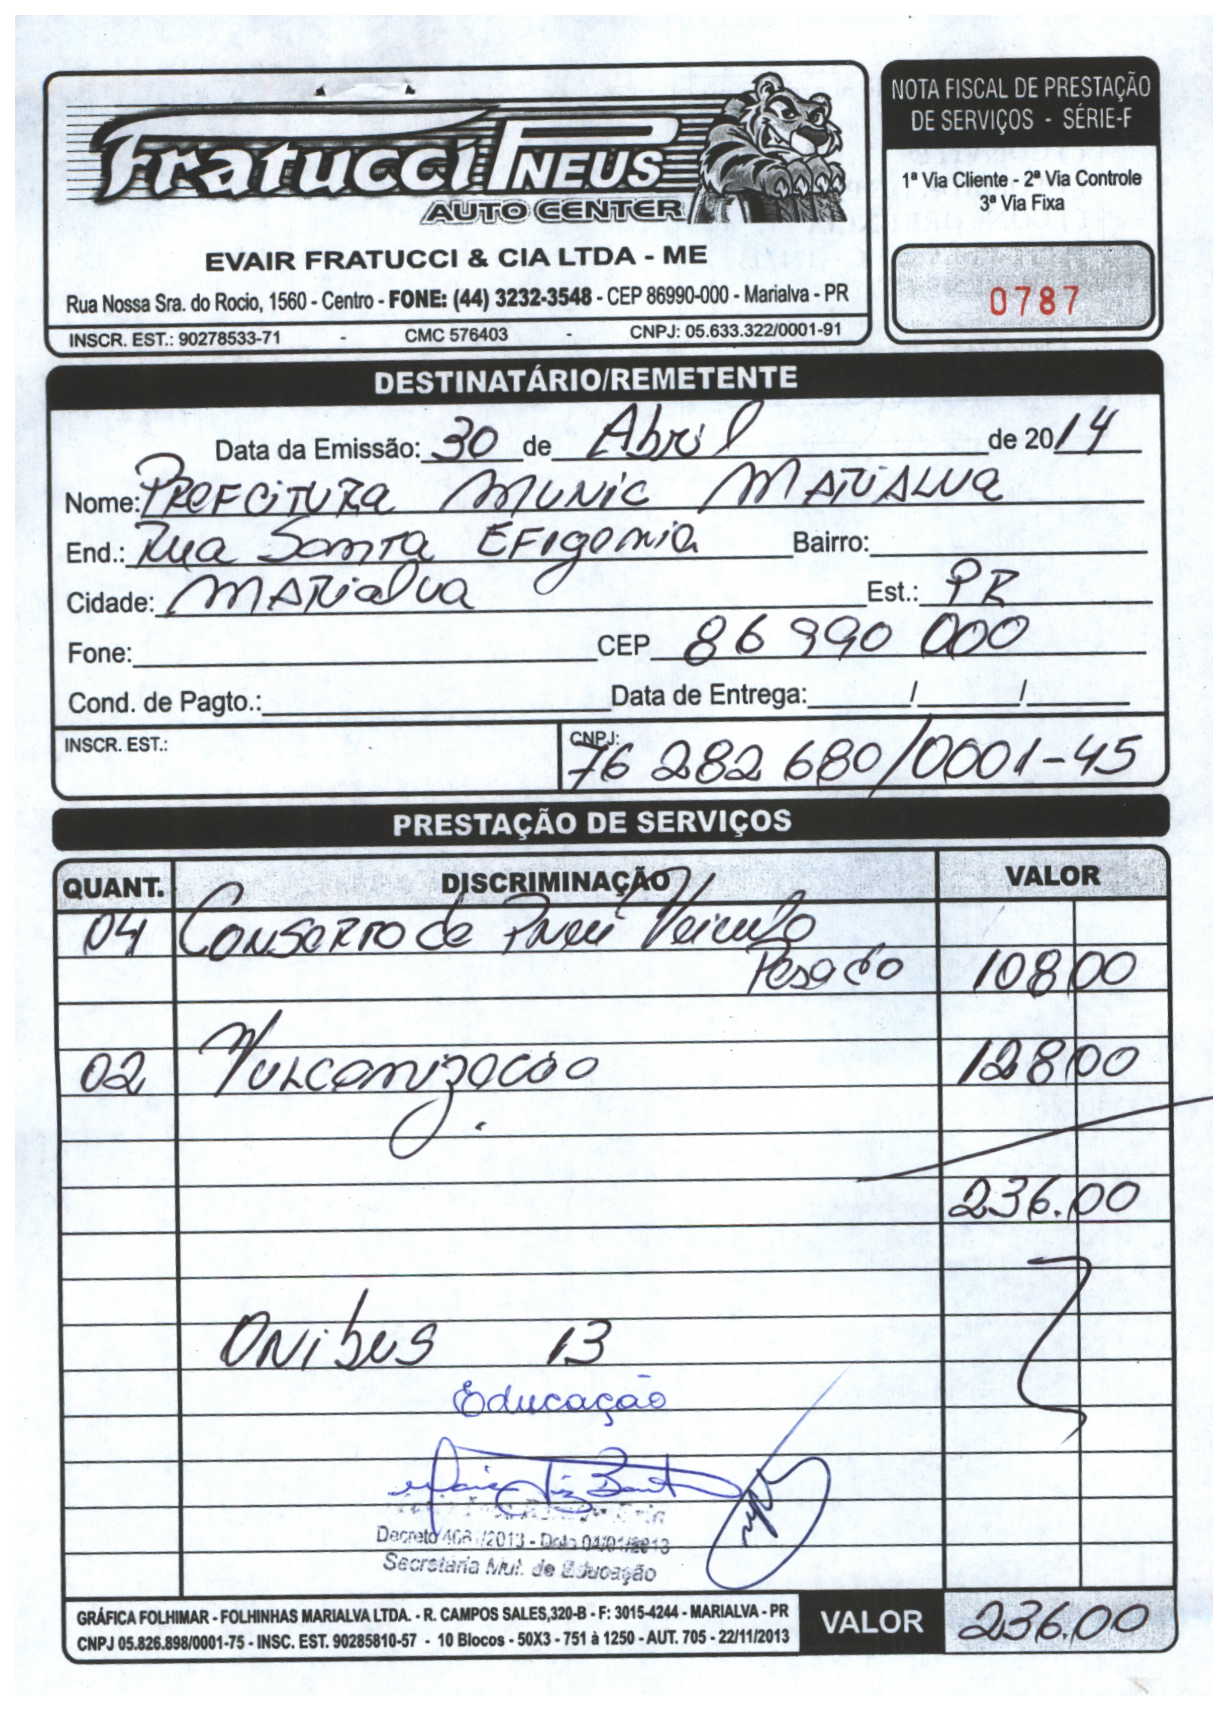 Fratucci PNEUS
AUTO CENTER
EVAIR FRATUCCI & CIA LTDA - ME
Rua Nossa Sra. do Rocio, 1560 - Centro - FONE: (44) 3232-3548 - CEP 86990-000 - Marialva - PR
INSCR. EST.: 90278533-71 - CMC 576403 - CNPJ: 05.633.322/0001-91
NOTA FISCAL DE PRESTAÇÃO
DE SERVIÇOS - SÉRIE-F
1ª Via Cliente - 2ª Via Controle
3ª Via Fixa
0787
DESTINATÁRIO/REMETENTE
Data da Emissão: 30 de Abril de 2014
Nome: PREFEITURA MUNIC MARIALVA
End.: Rua Santa EFIGENIA Bairro:
Cidade: MARIALVA Est.: PR
Fone: CEP 86 990 000
Cond. de Pagto.: Data de Entrega: / /
INSCR. EST.: CNPJ: 76 282 680/0001-45
PRESTAÇÃO DE SERVIÇOS
QUANT. DISCRIMINAÇÃO VALOR
04 CONSERTO de Pneu Veiculo
Pesado 108,00
02 Vulcanização 128,00
236.00
ONibus 13
Educação
Decreto /2013 - Data 04/01/2013
Secretaria Mul. de Educação
GRÁFICA FOLHIMAR - FOLHINHAS MARIALVA LTDA. - R. CAMPOS SALES,320-B - F: 3015-4244 - MARIALVA - PR
CNPJ 05.826.898/0001-75 - INSC. EST. 90285810-57 - 10 Blocos - 50X3 - 751 à 1250 - AUT. 705 - 22/11/2013
VALOR 236,00